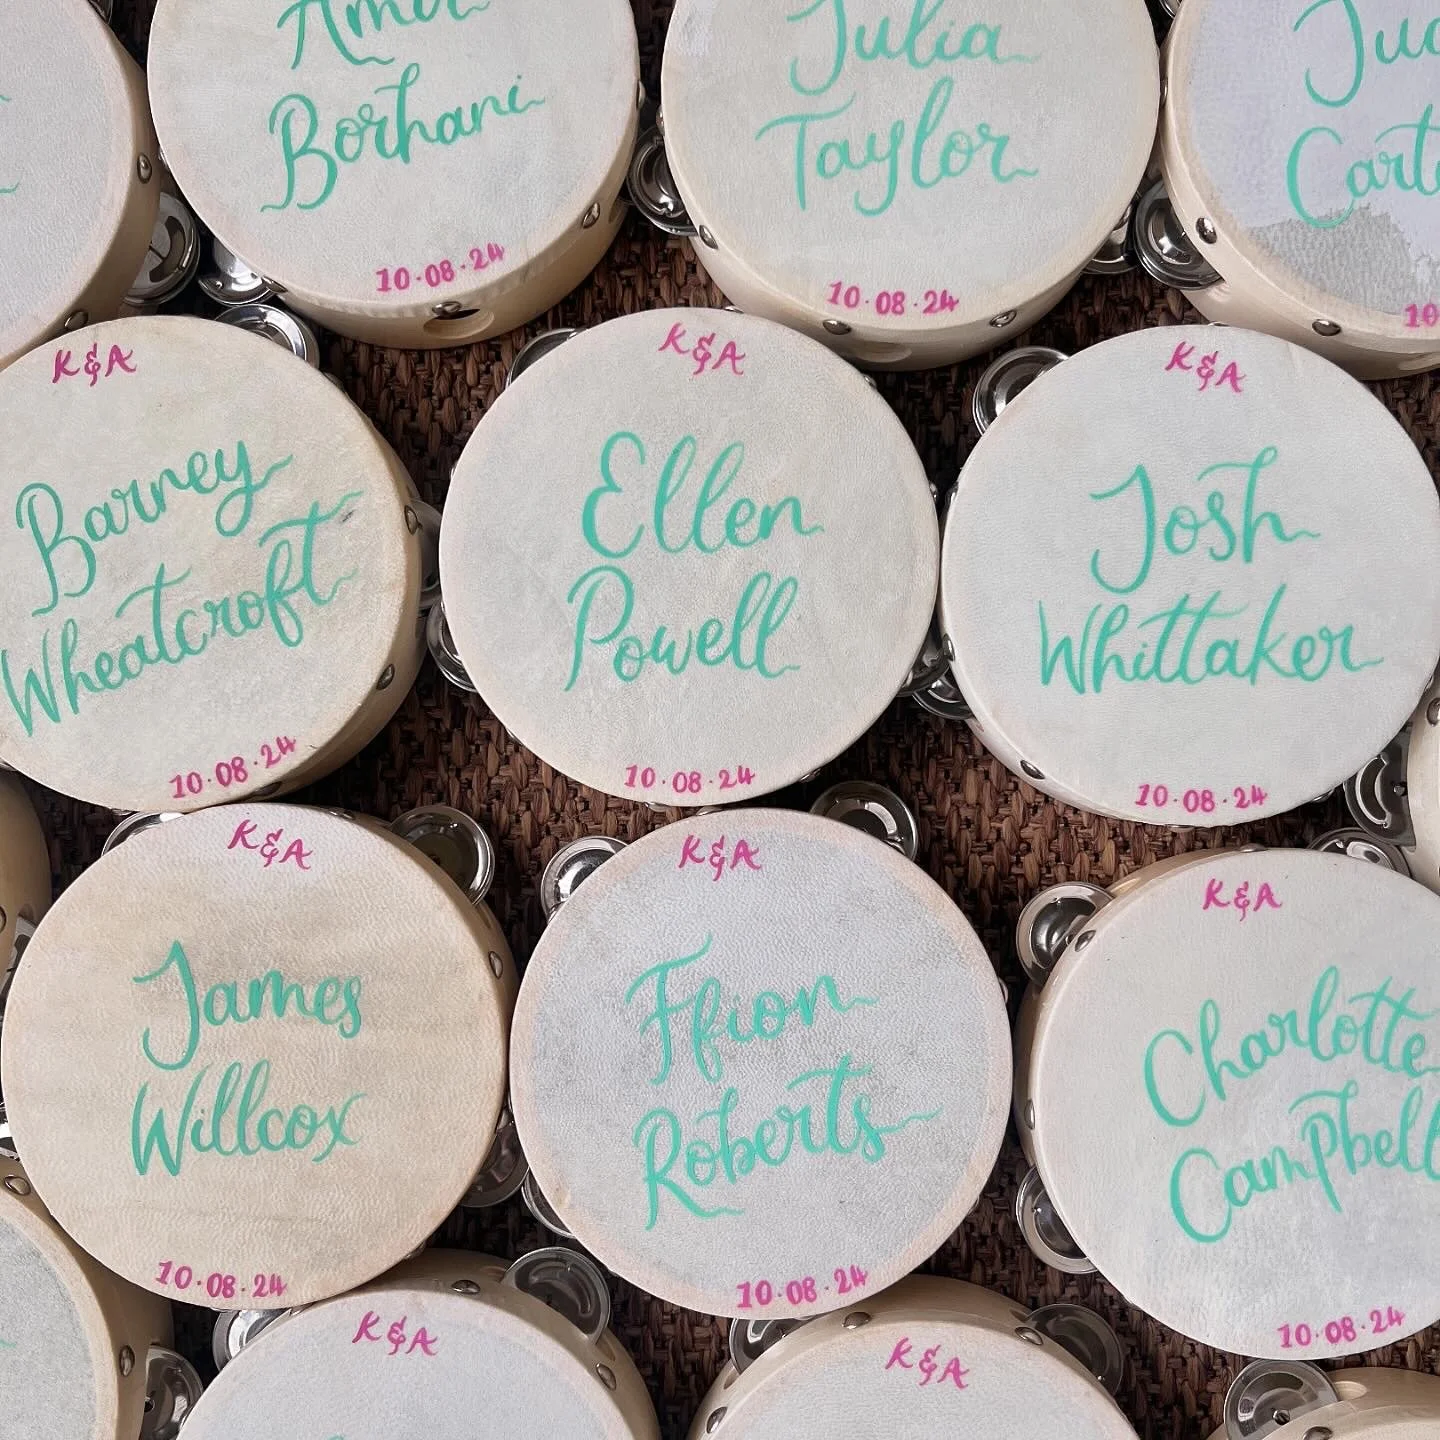 Borhani
10·08·24
Julia
Taylor
10·08·24
K&A
Barney
Wheatcroft
10·08·24
K&A
Ellen
Powell
10·08·24
K&A
Josh
Whittaker
10·08·24
K&A
James
Willcox
10·08·24
K&A
Ffion
Roberts
10·08·24
K&A
Charlotte
Campbell
10·08·24
K&A
K&A